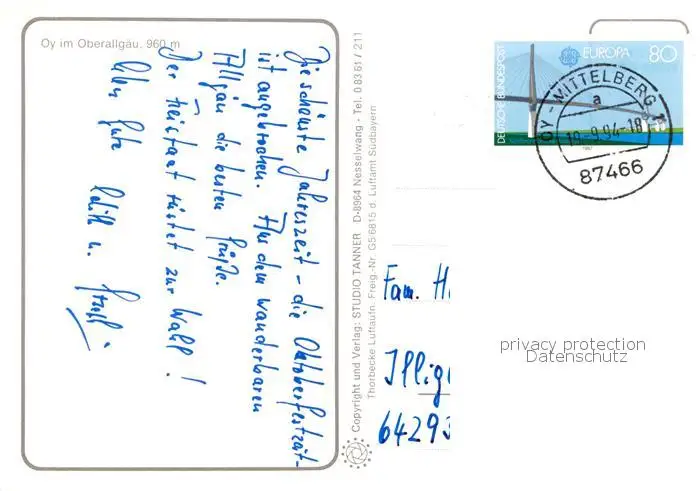 Oy im Oberallgäu. 960 m
Die schönste Jahreszeit - die Oktoberfestzeit -
ist angebrochen. Aus dem wunderbaren
Allgäu die besten Grüße.
Der Freistaat rüstet zur Wahl!
Alles Gute
Edith u.
Copyright und Verlag: STUDIO TANNER D-8964 Nesselwang - Tel. 0 83 61 / 211
Thorbecke Luftaufn. Freig.-Nr. G5/6815 d. Luftamt Südbayern
DEUTSCHE BUNDESPOST
EUROPA 80
1987
OY-MITTELBERG 1
a
18.-9.94-18
87466
Fam. H
Illig
64293
privacy protection
Datenschutz